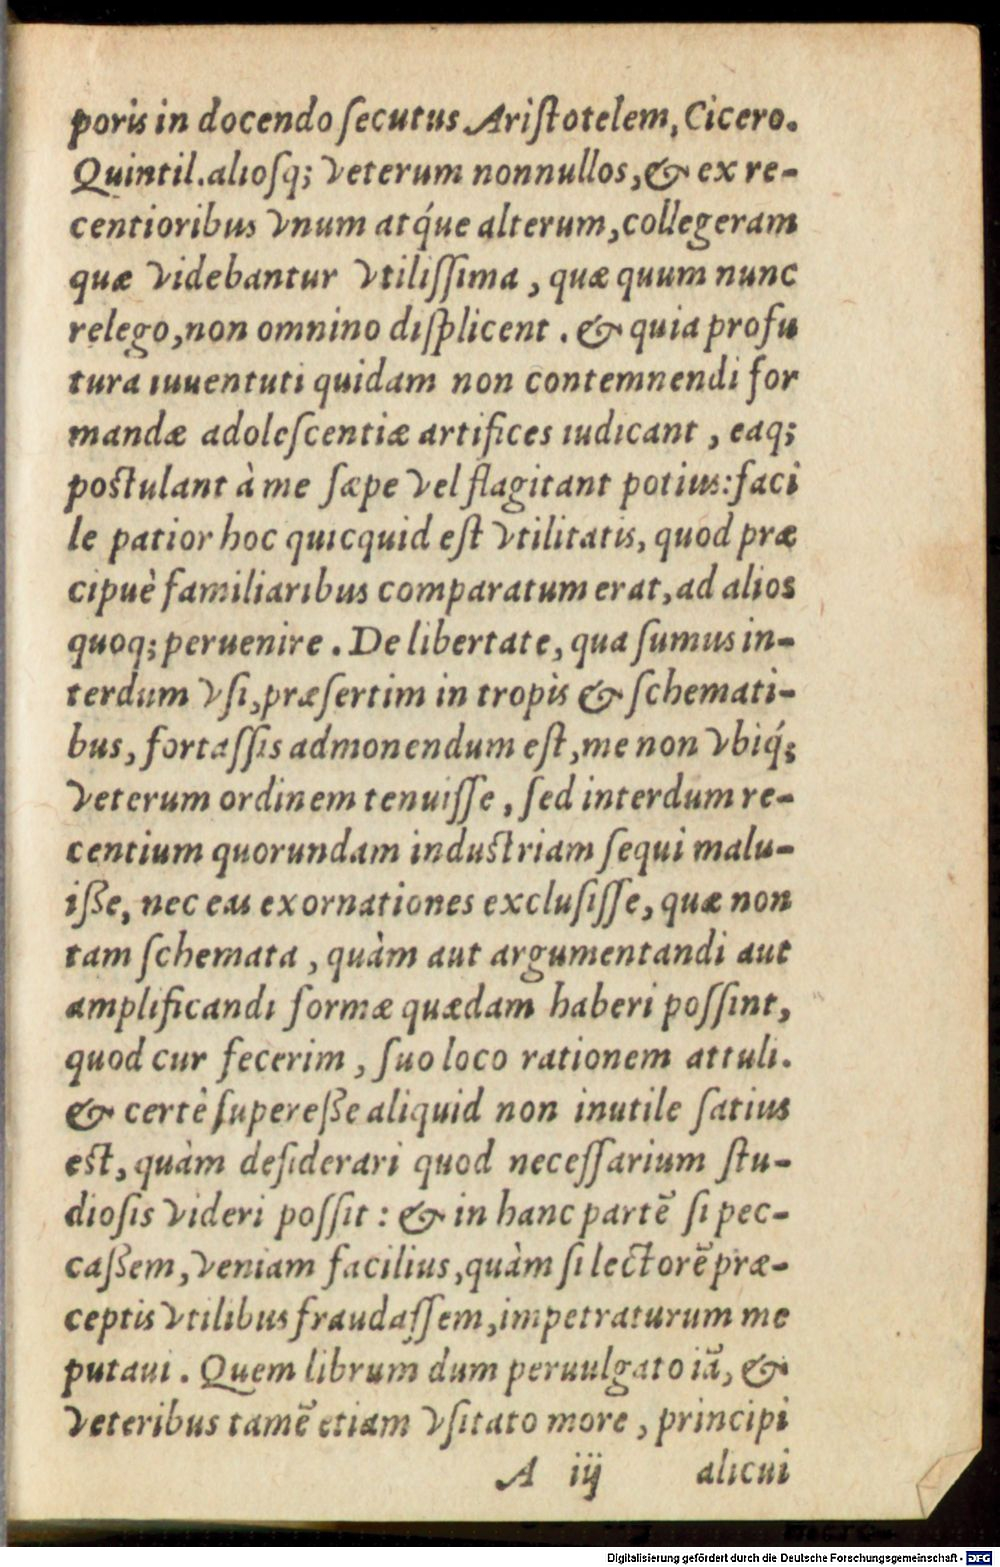 poris in docendo ſecutus Ariſtotelem, Cicero.
Quintil. alioſq; veterum nonnullos, & ex re-
centioribus vnum atq́ue alterum, collegeram
quæ videbantur vtiliſſima, quæ quum nunc
relego, non omnino diſplicent. & quia profu
tura iuuentuti quidam non contemnendi for
mandæ adoleſcentiæ artifices iudicant, eaq;
poſtulant à me ſæpe vel flagitant potius: faci
le patior hoc quicquid eſt vtilitatis, quod præ
cipuè familiaribus comparatum erat, ad alios
quoq; peruenire. De libertate, qua ſumus in-
terdum vſi, præſertim in tropis & ſchemati-
bus, fortaſſis admonendum eſt, me non vbiq́;
veterum ordinem tenuiſſe, ſed interdum re-
centium quorundam induſtriam ſequi malu-
iße, nec eas exornationes excluſiſſe, quæ non
tam ſchemata, quàm aut argumentandi aut
amplificandi formæ quædam haberi poſſint,
quod cur fecerim, ſuo loco rationem attuli.
& certè ſupereße aliquid non inutile ſatius
eſt, quàm deſiderari quod neceſſarium ſtu-
dioſis videri poſſit: & in hanc partẽ ſi pec-
caßem, veniam facilius, quàm ſi lectorẽ præ-
ceptis vtilibus fraudaſſem, impetraturum me
putaui. Quem librum dum peruulgato iã, &
veteribus tamẽ etiam vſitato more, principi
A iij alicui
Digitalisierung gefördert durch die Deutsche Forschungsgemeinschaft - DFG